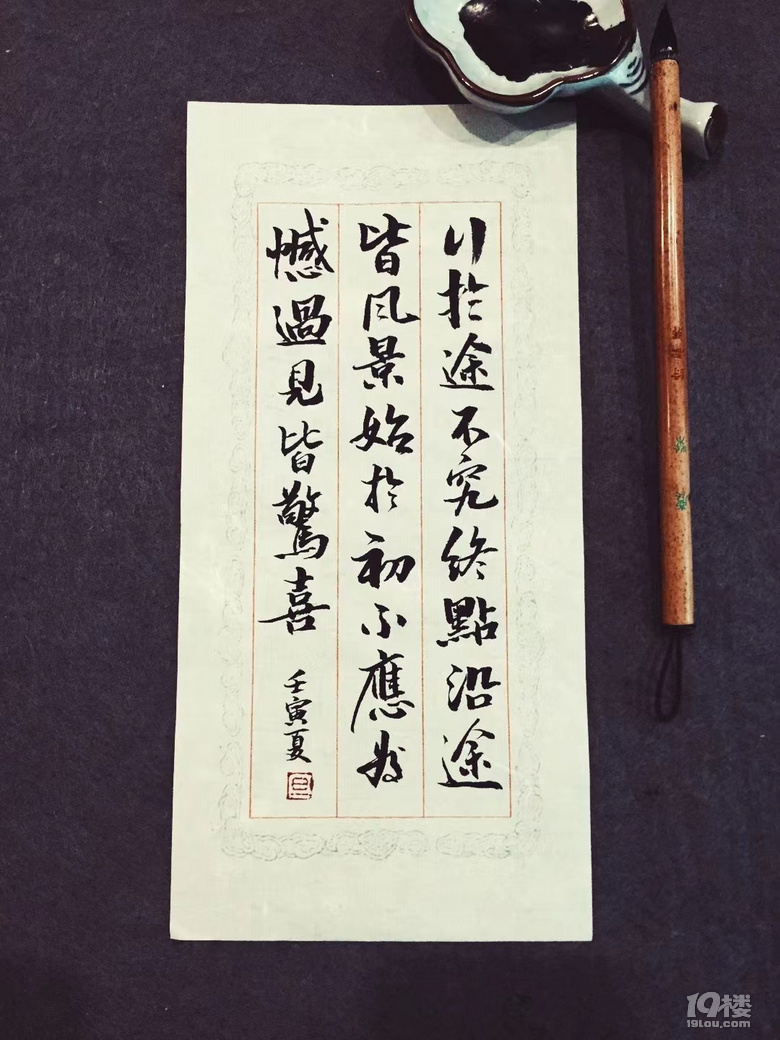 行於途不究終點沿途
皆風景始於初不應為
憾遇見皆驚喜
壬寅夏
19楼
19lou.com